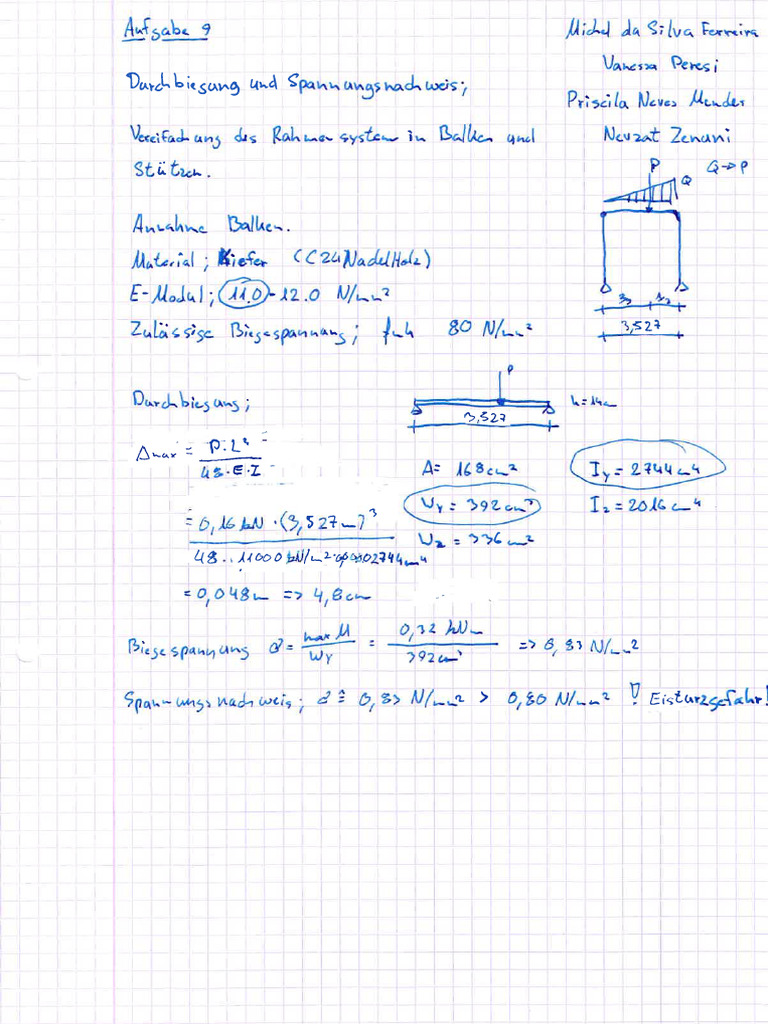 Aufgabe 9
Michel da Silva Ferreira
Vanessa Peresi
Priscila Neves Mendes
Nevzat Zenuni
Durchbiegung und Spannungsnachweis;
Vereifachung des Rahmensystem in Balken und
Stützen.
P Q Q→P
3,527
Annahme Balken.
Material; Kiefer (C24 NadelHolz)
E-Modul; 11.0-12.0 N/mm²
Zulässige Biegespannung; fmk 80 N/mm²
Durchbiegung;
P
3,527
h=14cm
Δmax = P·L³ / 48·E·I =
A= 168cm²
Iy = 2744cm⁴
Wy = 392cm³
Iz = 2016cm⁴
Wz = 336cm²
= 0,16 kN · (3,527m)³ /
= 0,048m => 4,8cm
Biegespannung σ = max M / Wy = 0,32 kNm / 392cm³ => 0,83 N/mm²
Spannungsnachweis; σ ≙ 0,83 N/mm² > 0,80 N/mm² ! Eisturzgefahr!